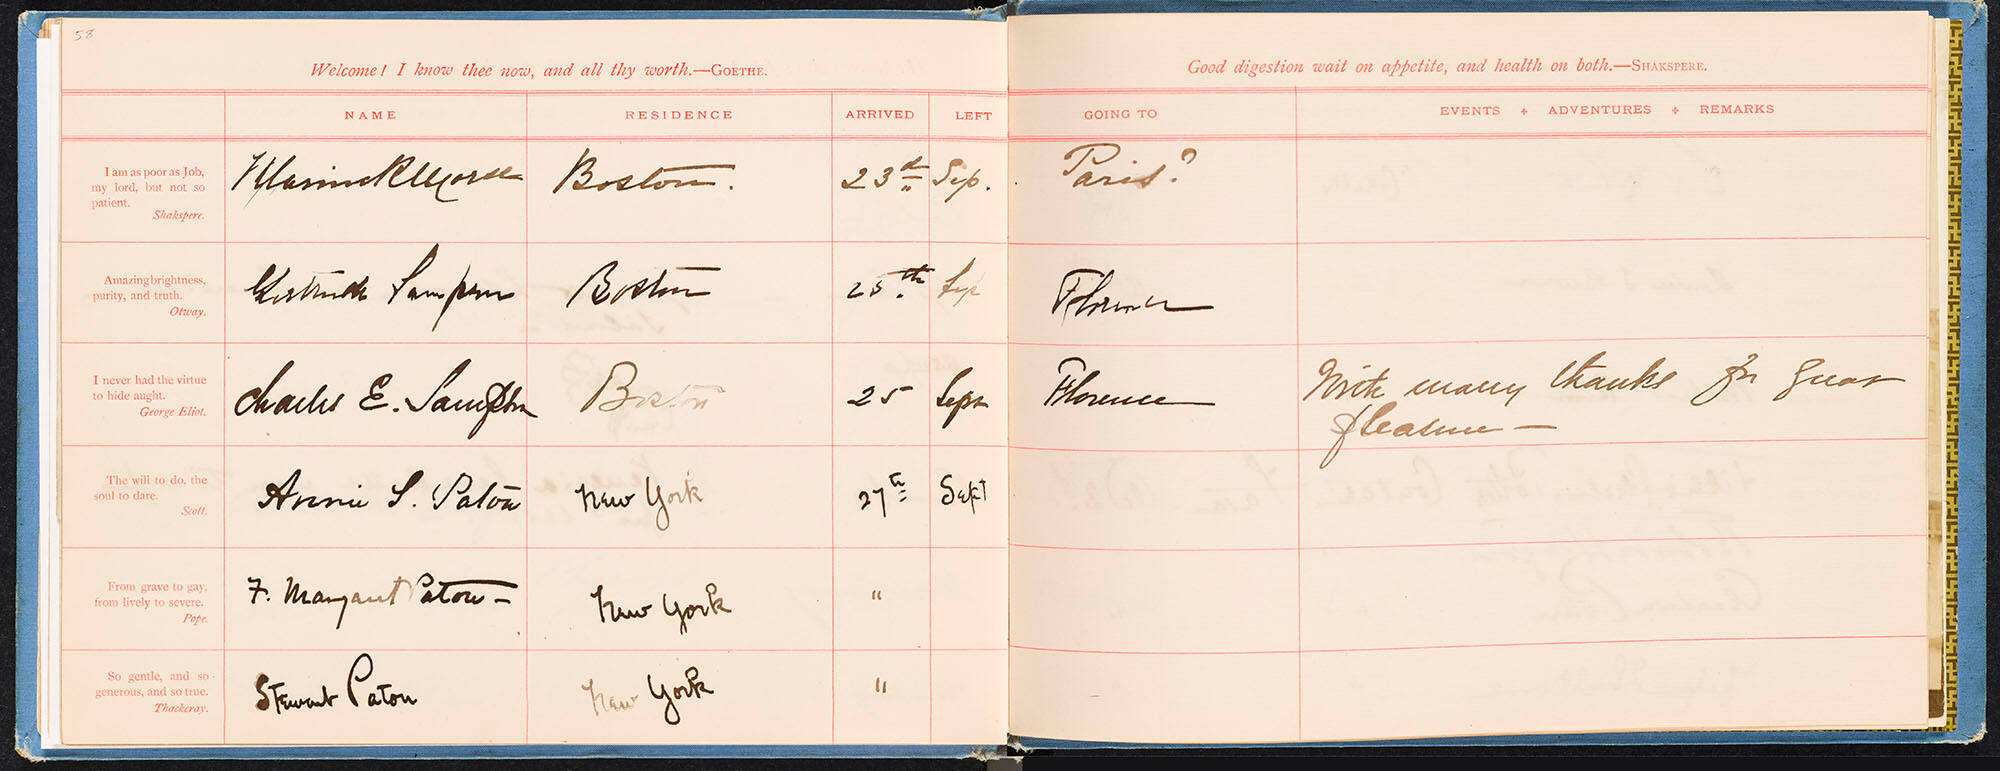 58
Welcome! I know thee now, and all thy worth.—GOETHE.
NAME RESIDENCE ARRIVED LEFT
I am as poor as Job,
my lord, but not so
patient.
Shakspere.
Boston. 23d Sep.
Amazing brightness,
purity, and truth.
Otway.
Gertrude Sampson Boston 25th Sep
I never had the virtue
to hide aught.
George Eliot.
Charles E. Sampson Boston 25 Sept
The will to do, the
soul to dare.
Scott.
Annie S. Paton New York 27th Sept
From grave to gay,
from lively to severe.
Pope.
F. Margaret Paton— New York "
So gentle, and so
generous, and so true.
Thackeray.
Stewart Paton New York "
Good digestion wait on appetite, and health on both.—SHAKSPERE.
GOING TO EVENTS ✦ ADVENTURES ✦ REMARKS
Paris?
Florence
Florence With many thanks for great
pleasure —